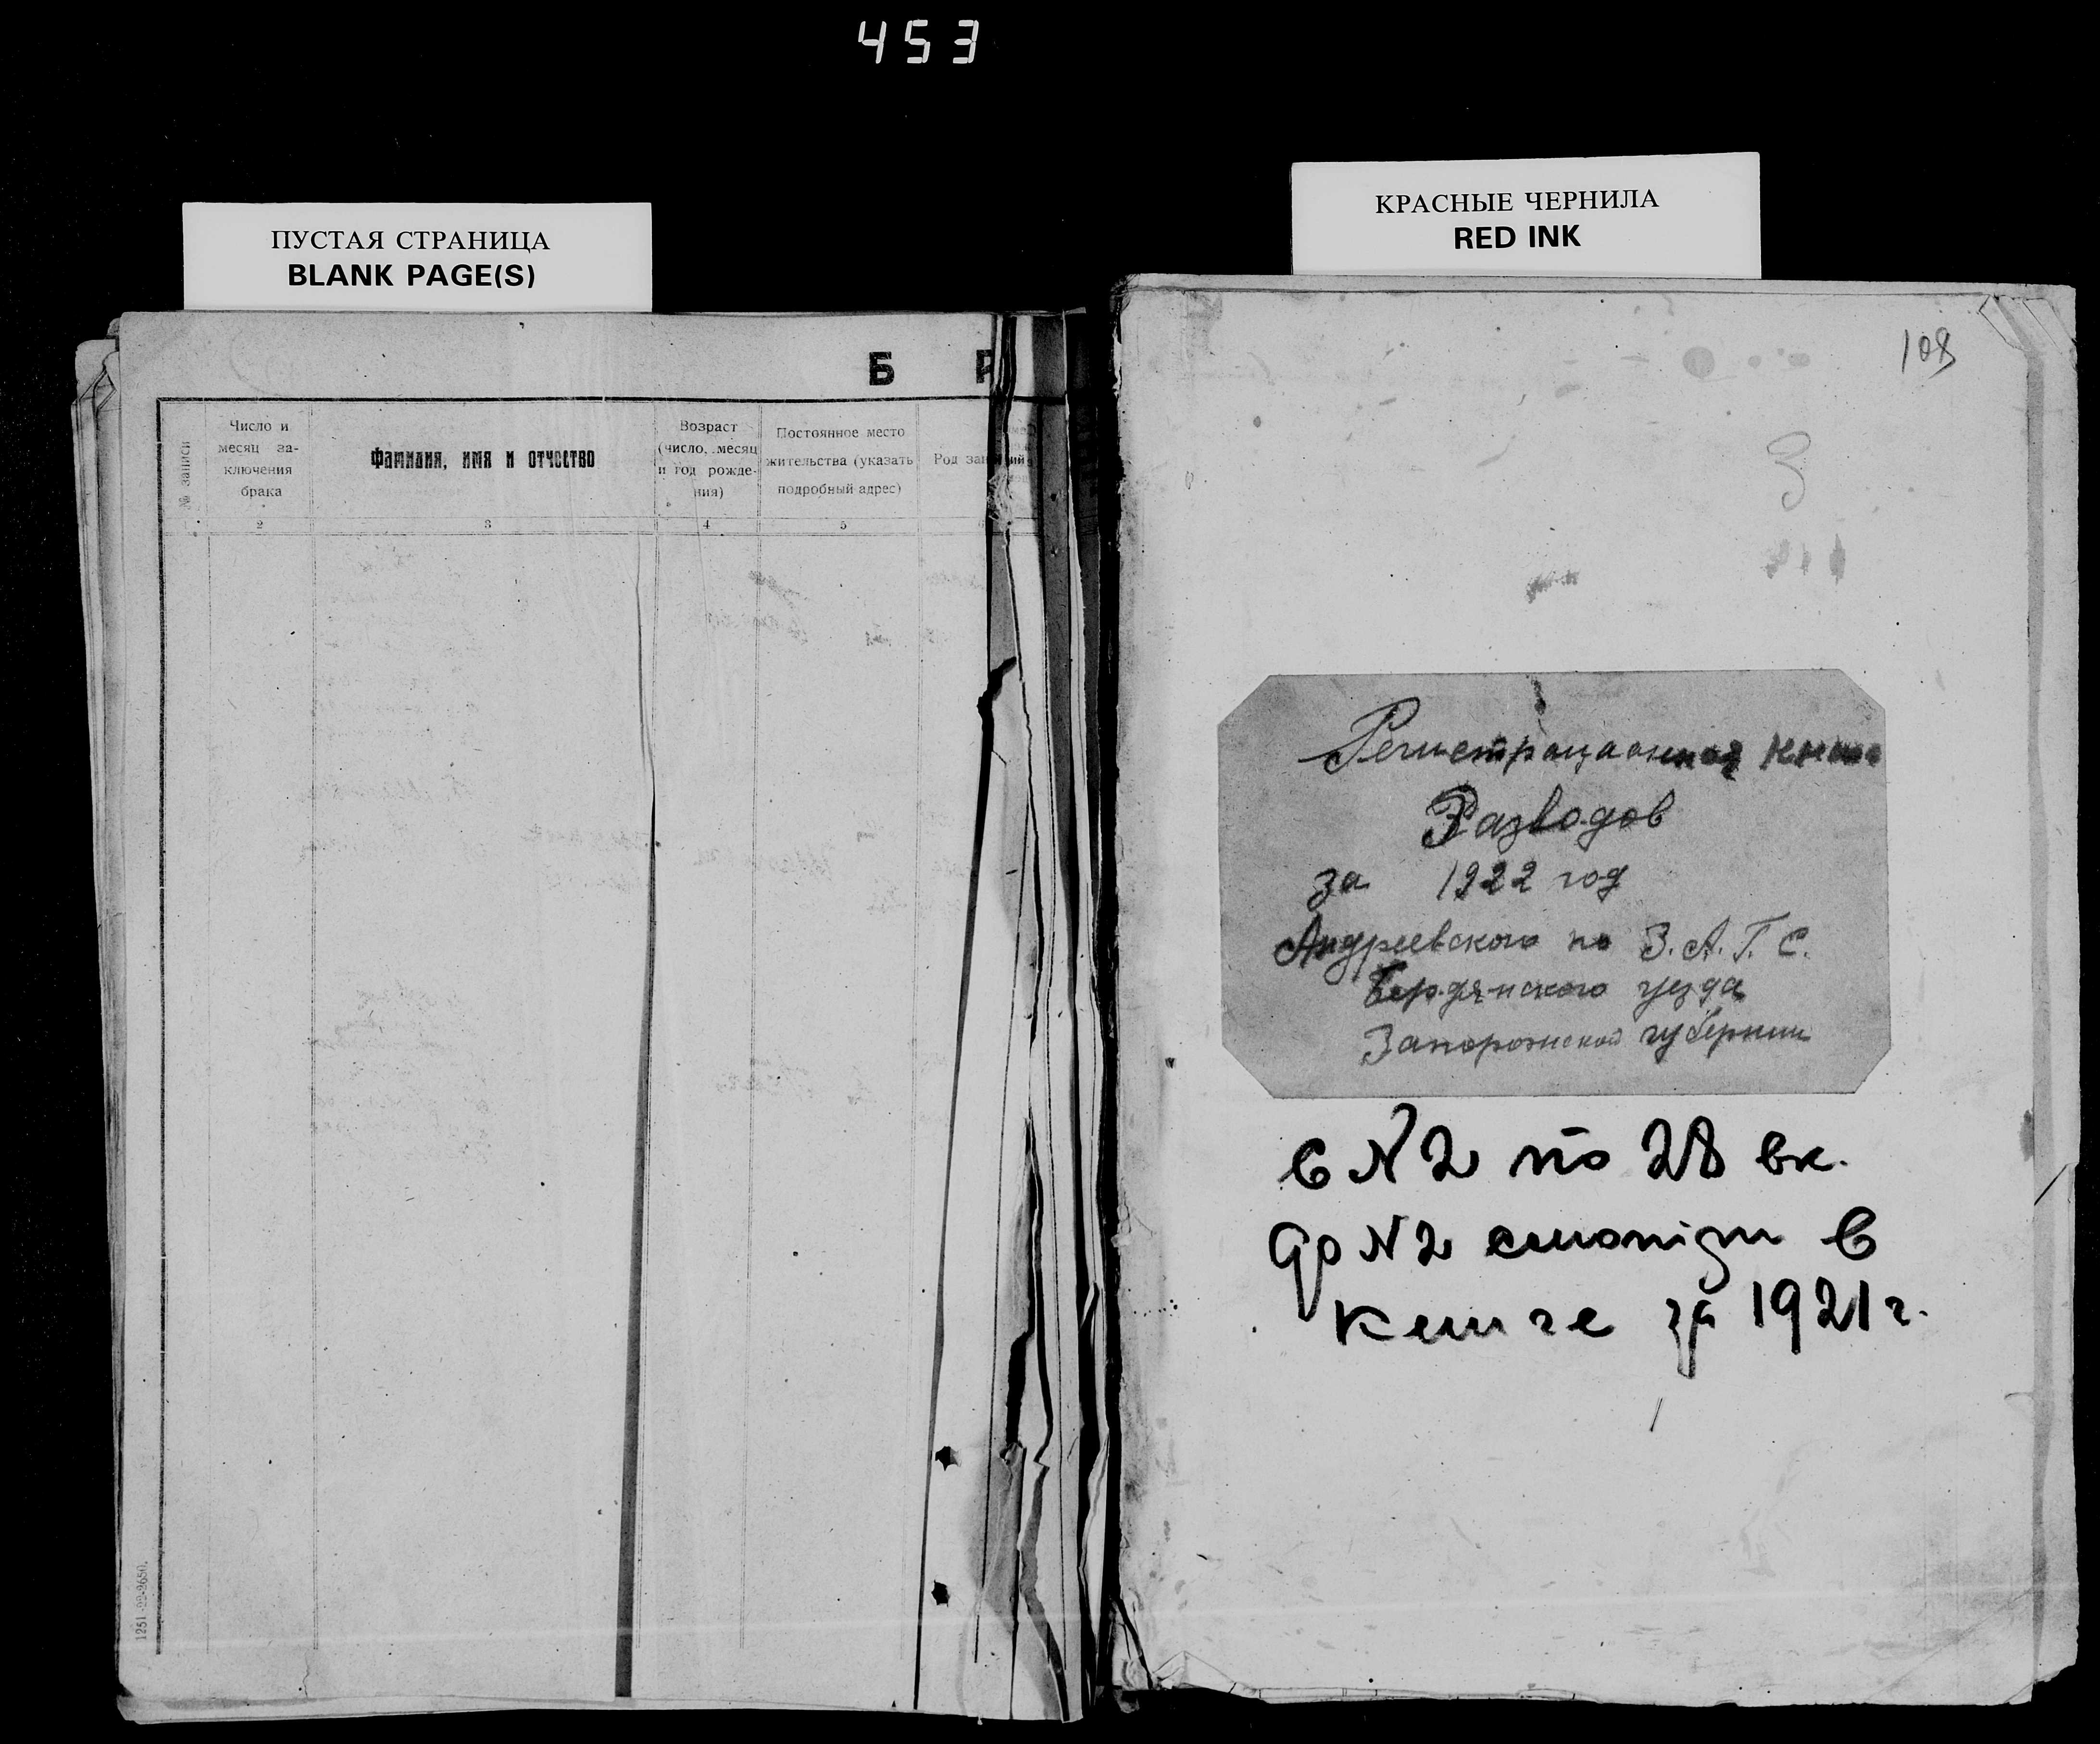 453
ПУСТАЯ СТРАНИЦА
BLANK PAGE(S)
Б Р
№ записи
Число и
месяц за-
ключения
брака
Фамилия, имя и отчество
Возраст
(число, месяц
и год рожде-
ния)
Постоянное место
жительства (указать
подробный адрес)
Род занятий
2 3 4 5
1251-22-2650.
КРАСНЫЕ ЧЕРНИЛА
RED INK
108
3
Регистрационная книга
Разводов
за 1922 год
Андреевского по З.А.Г.С.
Бердянского уезда
Запорожской губернии
с №2 по 28 вк.
до №2 смотри в
книге за 1921 г.